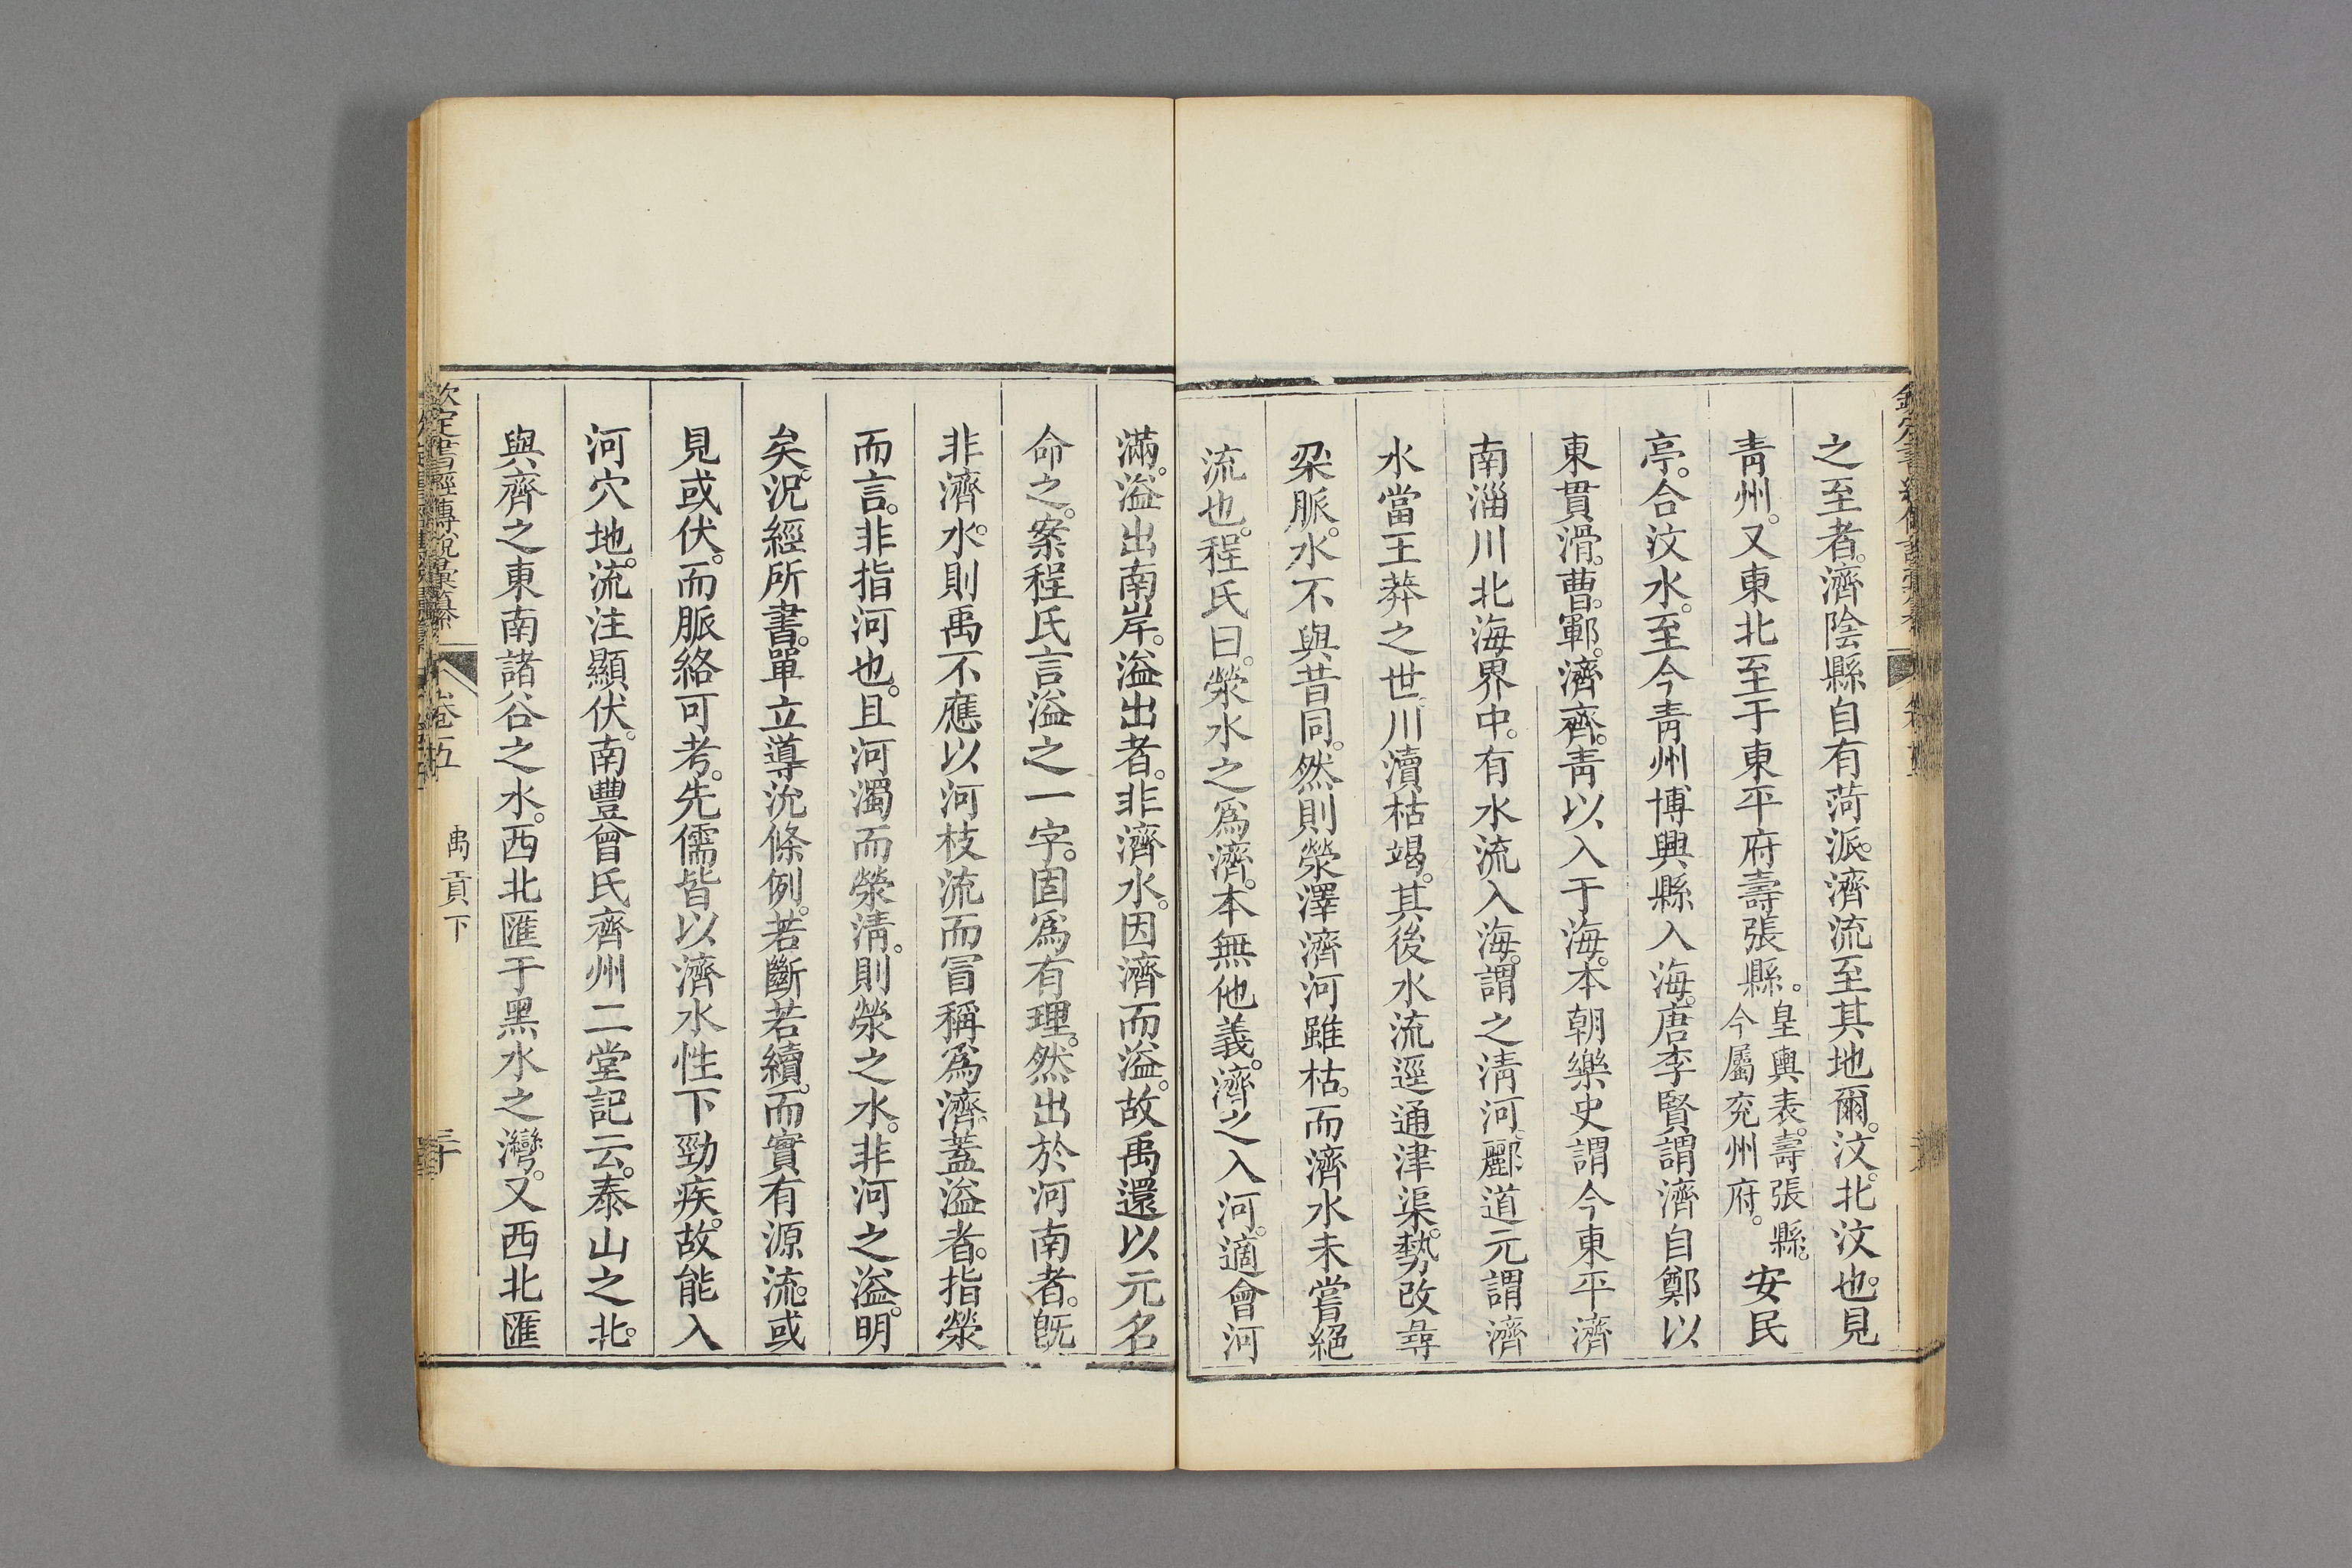 之至者。濟陰縣自有菏派。濟流至其地爾。汶。北汶也。見
青州。又東北至于東平府壽張縣。皇輿表。壽張縣。今屬兗州府。安民
亭。合汶水。至今青州博興縣入海。唐李賢謂濟自鄭以
東貫滑。曹。鄆。濟。齊。青以入于海。本朝樂史謂今東平濟
南淄川北海界中。有水流入海。謂之清河。酈道元謂濟
水當王莽之世。川瀆枯竭。其後水流逕通津渠。勢改尋
梁脈。水不與昔同。然則滎澤濟河雖枯。而濟水未嘗絕
流也。程氏曰。滎水之為濟。本無他義。濟之入河。適會河
滿。溢出南岸。溢出者。非濟水。因濟而溢。故禹還以元名
命之。案程氏言溢之一字。固為有理。然出於河南者。旣
非濟水。則禹不應以河枝流而冒稱為濟。蓋溢者。指滎
而言。非指河也。且河濁而滎清。則滎之水。非河之溢。明
矣。況經所書。單立導沇條例。若斷若續。而實有源流。或
見或伏。而脈絡可考。先儒皆以濟水性下勁疾。故能入
河穴地。流注顯伏。南豐曾氏齊州二堂記云。泰山之北。
與齊之東南諸谷之水。西北匯于黑水之灣。又西北匯
欽定書經傳說彙纂
卷五
禹貢下